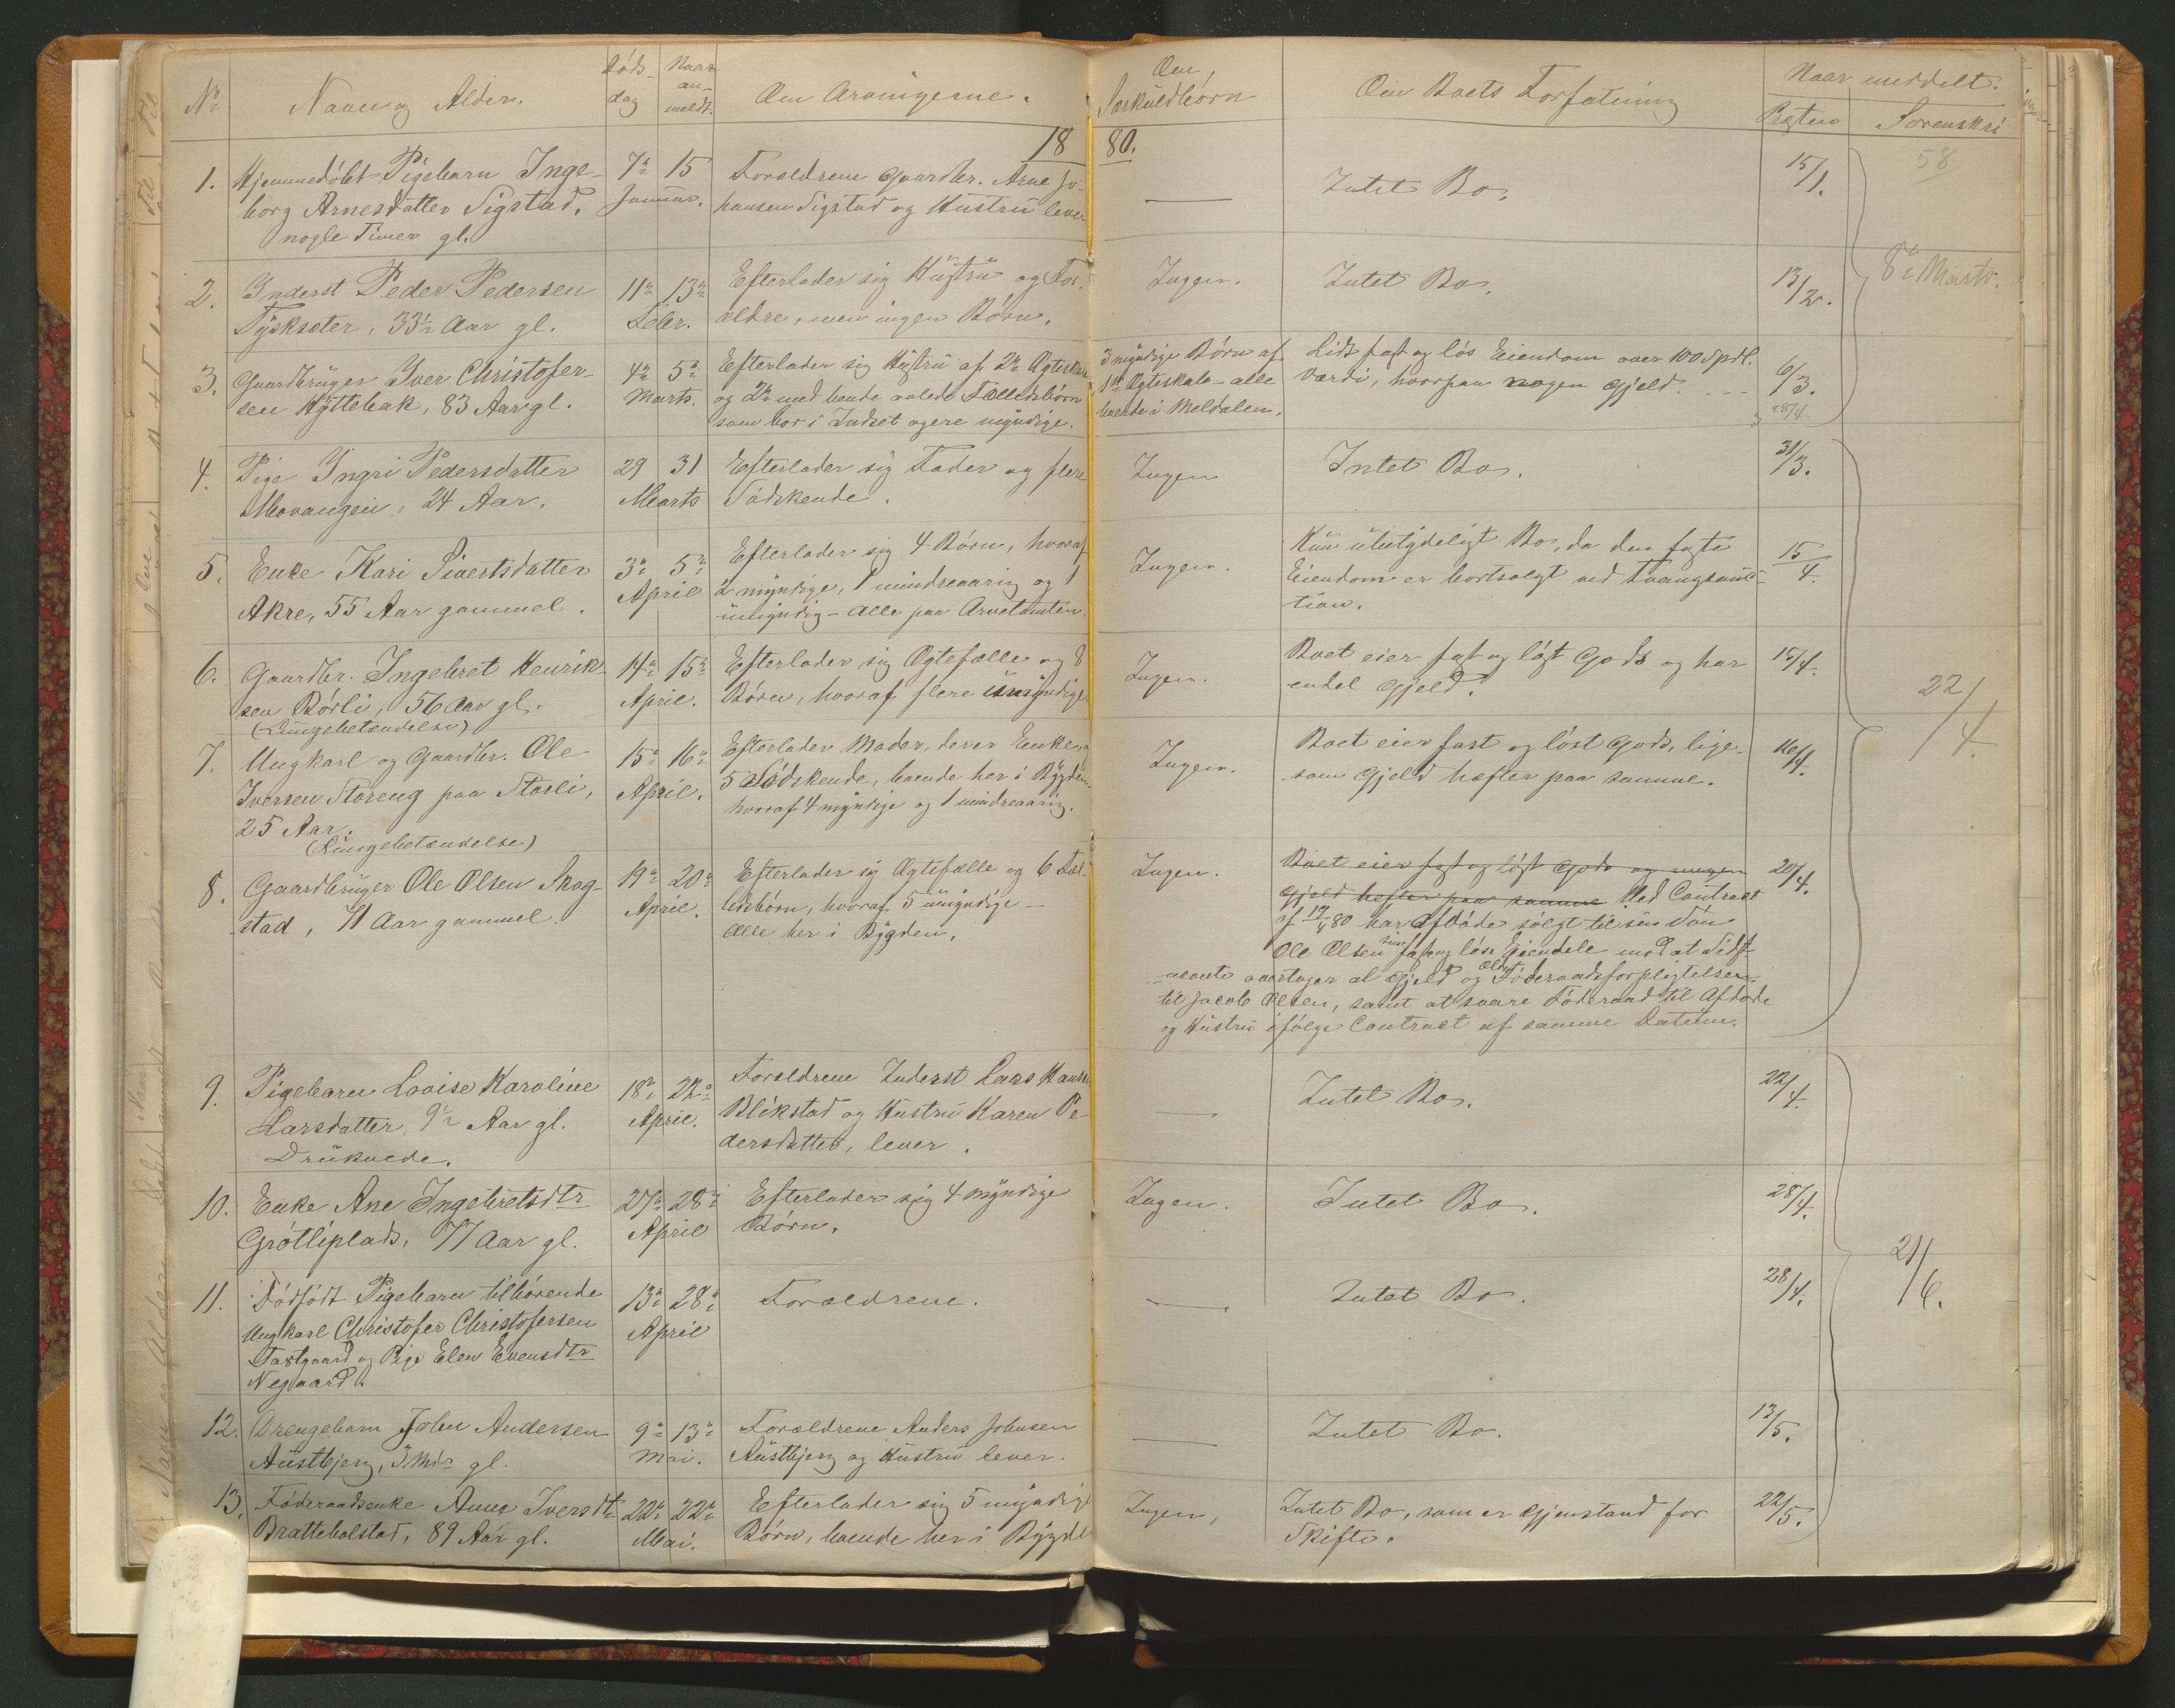 No Navn og Alder. Døds- dag Naar an- meldt. Om Arvingerne. Om Særkuldbørn Om Boets Forfatning Naar meddelt. Præsten Sorenskri
1880.
1. Hjemmedøbt Pigebarn Inge- 7de 15 Forældrene Gaardbr. Arne Jo- — Intet Bo. 15/1. 58
borg Arnesdatter Sigstad, Januar. hansen Sigstad og Hustru lever
nogle Timer gl.
2. Inderst Peder Pedersen 11te 13de Efterlader sig Hustru og For- Ingen. Intet Bo. 13/2. 8de Marts.
Tyskseter, 33½ Aar gl. Febr. ældre, men ingen Børn.
3. Gaardbruger Iver Christofer- 4de 5te Efterlader sig Hustru af 2det Ægteskab 3 myndige Børn af Lidt fast og løs Eiendom over 100 Spdl. 6/3.
sen Hyttebak, 83 Aar gl. Marts. og 2de med hende avlede Fælledsbørn 1ste Ægteskab – alle Værdi, hvorpaa nogen Gjeld. 28/4
som bor i Indset og ere myndige. boende i Meldalen.
4. Pige Ingri Pedersdatter 29 31 Efterlader sig Fader og flere Ingen Intet Bo. 31/3.
Movangen, 24 Aar. Marts Sødskende.
5. Enke Kari Sivertsdatter 3de 5te Efterlader sig 4 Børn, hvoraf Ingen. Kun ubetydeligt Bo, da den faste 15/4.
Akre, 55 Aar gammel. April 2 myndige, 1 mindreaarig og 1 Eiendom er bortsolgt ved Tvangsauc-
umyndig – alle paa Arvetomten. tion.
6. Gaardbr. Ingebret Henrik- 14de 15de Efterlader sig Ægtefælle og 8 Ingen. Boet eier fast og løst Gods og har 15/4.
sen Børli, 56 Aar gl. April. Børn, hvoraf flere umyndige endel Gjeld. 22/4.
(Lungebetændelse)
7. Ungkarl og Gaardbr. Ole 15de 16de Efterlader Moder, der er Enke, og Ingen. Boet eier fast og løst Gods, lige- 16/4.
Iversen Storeng paa Storli, April. 5 Sødskende, boende her i Bygden, som Gjeld hæfter paa samme.
25 Aar. hvoraf 4 myndige og 1 mindreaarig.
(Lungebetændelse)
8. Gaardbruger Ole Olsen Skog- 19de 20de Efterlader sig Ægtefælle og 6 Fæl- Ingen. Boet eier fast og løst Gods og megen 20/4.
stad, 71 Aar gammel. April. ledsbørn, hvoraf 5 umyndige – Gjeld hefter paa samme Ved Contract
Alle her i Bygden. af 80 har Afdøde solgt til sin Søn
Ole Olsen sine fast og løse Eiendele mod at Sidst-
nævnte overtager al Gjeld og Føderaadsforpligtelser
til Jacob Olsen, samt at svare Føderaad til Afdøde
og Hustru ifølge Contract af samme Datum.
9. Pigebarn Lovise Karoline 18de 22de Forældrene Inderst Lars Hansen — Intet Bo. 22/4.
Larsdatter, 9½ Aar gl. April. Blikstad og Hustru Karen Pe-
Druknede. dersdatter, lever.
10. Enke Ane Ingebretsdtr 27de 28de Efterlader sig 4 myndige Ingen. Intet Bo. 28/4.
Grötliplads, 77 Aar gl. April Børn.
11. Dødfødt Pigebarn tilhørende 13de 28de Forældrene. — Intet Bo. 28/4. 21/6.
Ungkarl Christofer Christofersen April
Tastgaard og Pige Elen Evensdtr
Negaard.
12. Drengebarn John Andersen 9de 13de Forældrene Anders Johnsen — Intet Bo. 13/5.
Austbjerg, 3 Mdr gl. Mai. Austbjerg og Hustru lever.
13. Føderaadsenke Anne Iversdtr 22de 22de Efterlader sig 5 myndige Ingen, Intet Bo, som er Gjenstand for 22/5.
Brattebolstad, 89 Aar gl. Mai. Børn, boende her i Bygden Skifte.